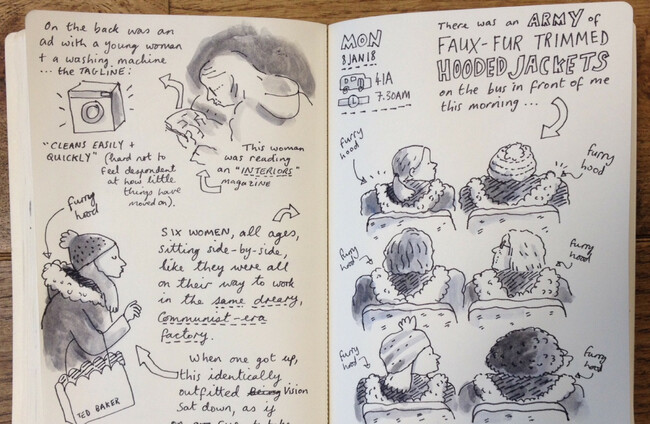 On the back was an
ad with a young woman
+ a washing machine
... the TAGLINE:
"CLEANS EASILY +
QUICKLY" (hard not to
feel despondent
at how little
things have
moved on).
This woman
was reading
an "INTERIORS"
magazine
furry
hood
SIX WOMEN, all ages,
sitting side-by-side,
like they were all
on their way to work
in the same dreary,
Communist-era
factory.
When one got up,
this identically
outfitted Being Vision
sat down, as if
TED BAKER
MON
8 JAN 18
41A
7.30AM
There was an ARMY of
FAUX-FUR TRIMMED
HOODED JACKETS
on the bus in front of me
this morning...
furry
hood
furry
hood
furry
hood
furry
hood
furry
hood
furry
hood